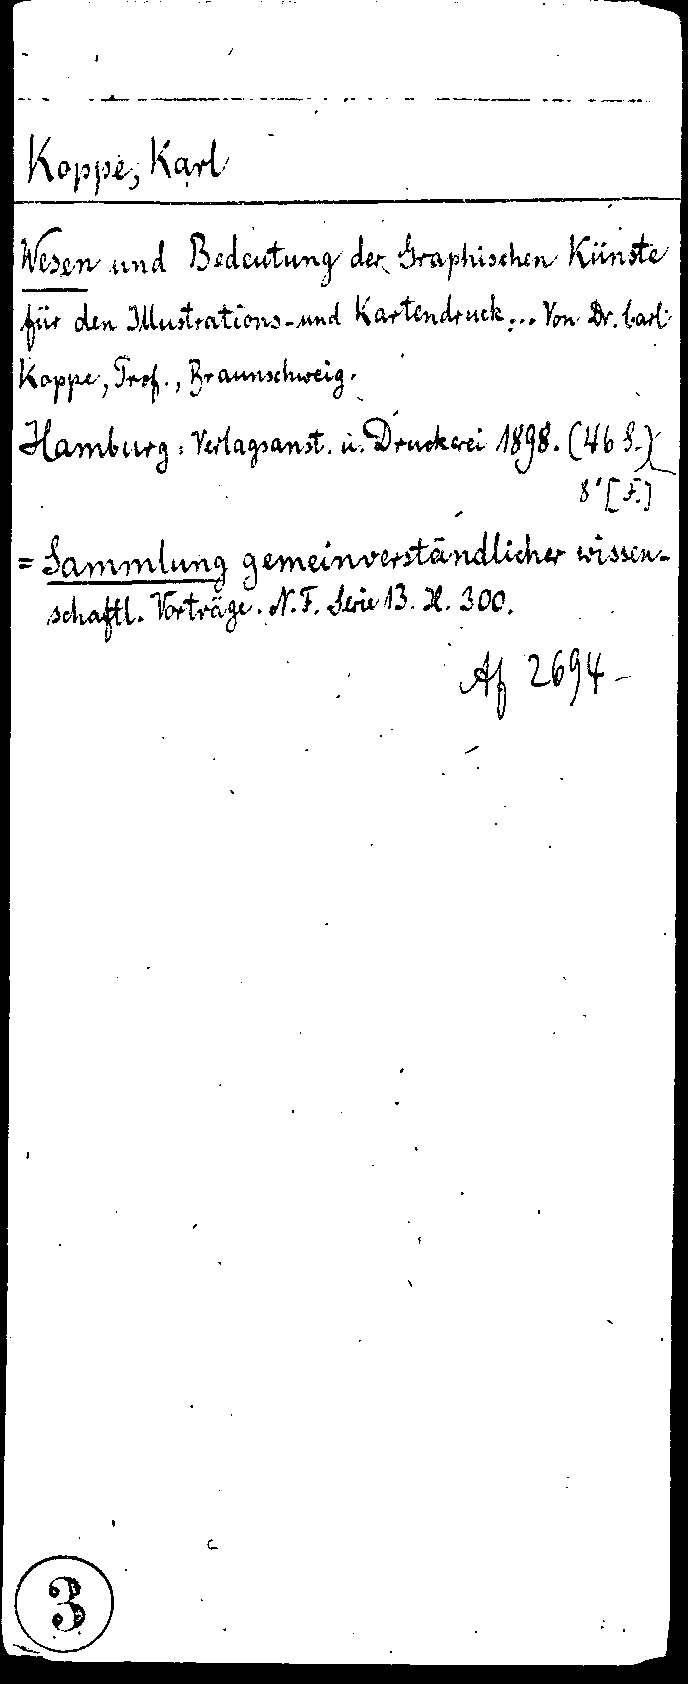 Koppe, Karl
Wesen und Bedeutung der Graphischen Künste
für den Illustrations- und Kartendruck... Von Dr. Carl
Koppe, Prof., Braunschweig.
Hamburg: Verlagsanst. u. Druckerei 1898. (46 S.)
8° [F.]
= Sammlung gemeinverständlicher wissen-
schaftl. Vorträge. N.F. Serie 13. H. 300.
Af 2694
3